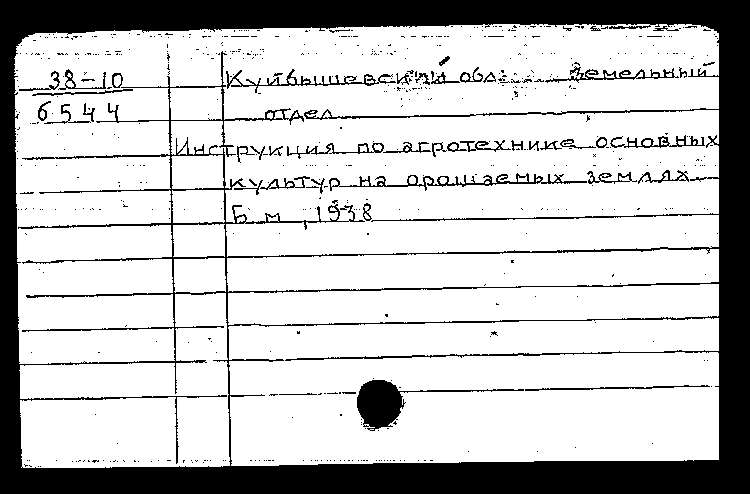 38-10
6544
Куйбышевский обл. Земельный
отдел
Инструкция по агротехнике основных
культур на орошаемых землях
Б м , 1938